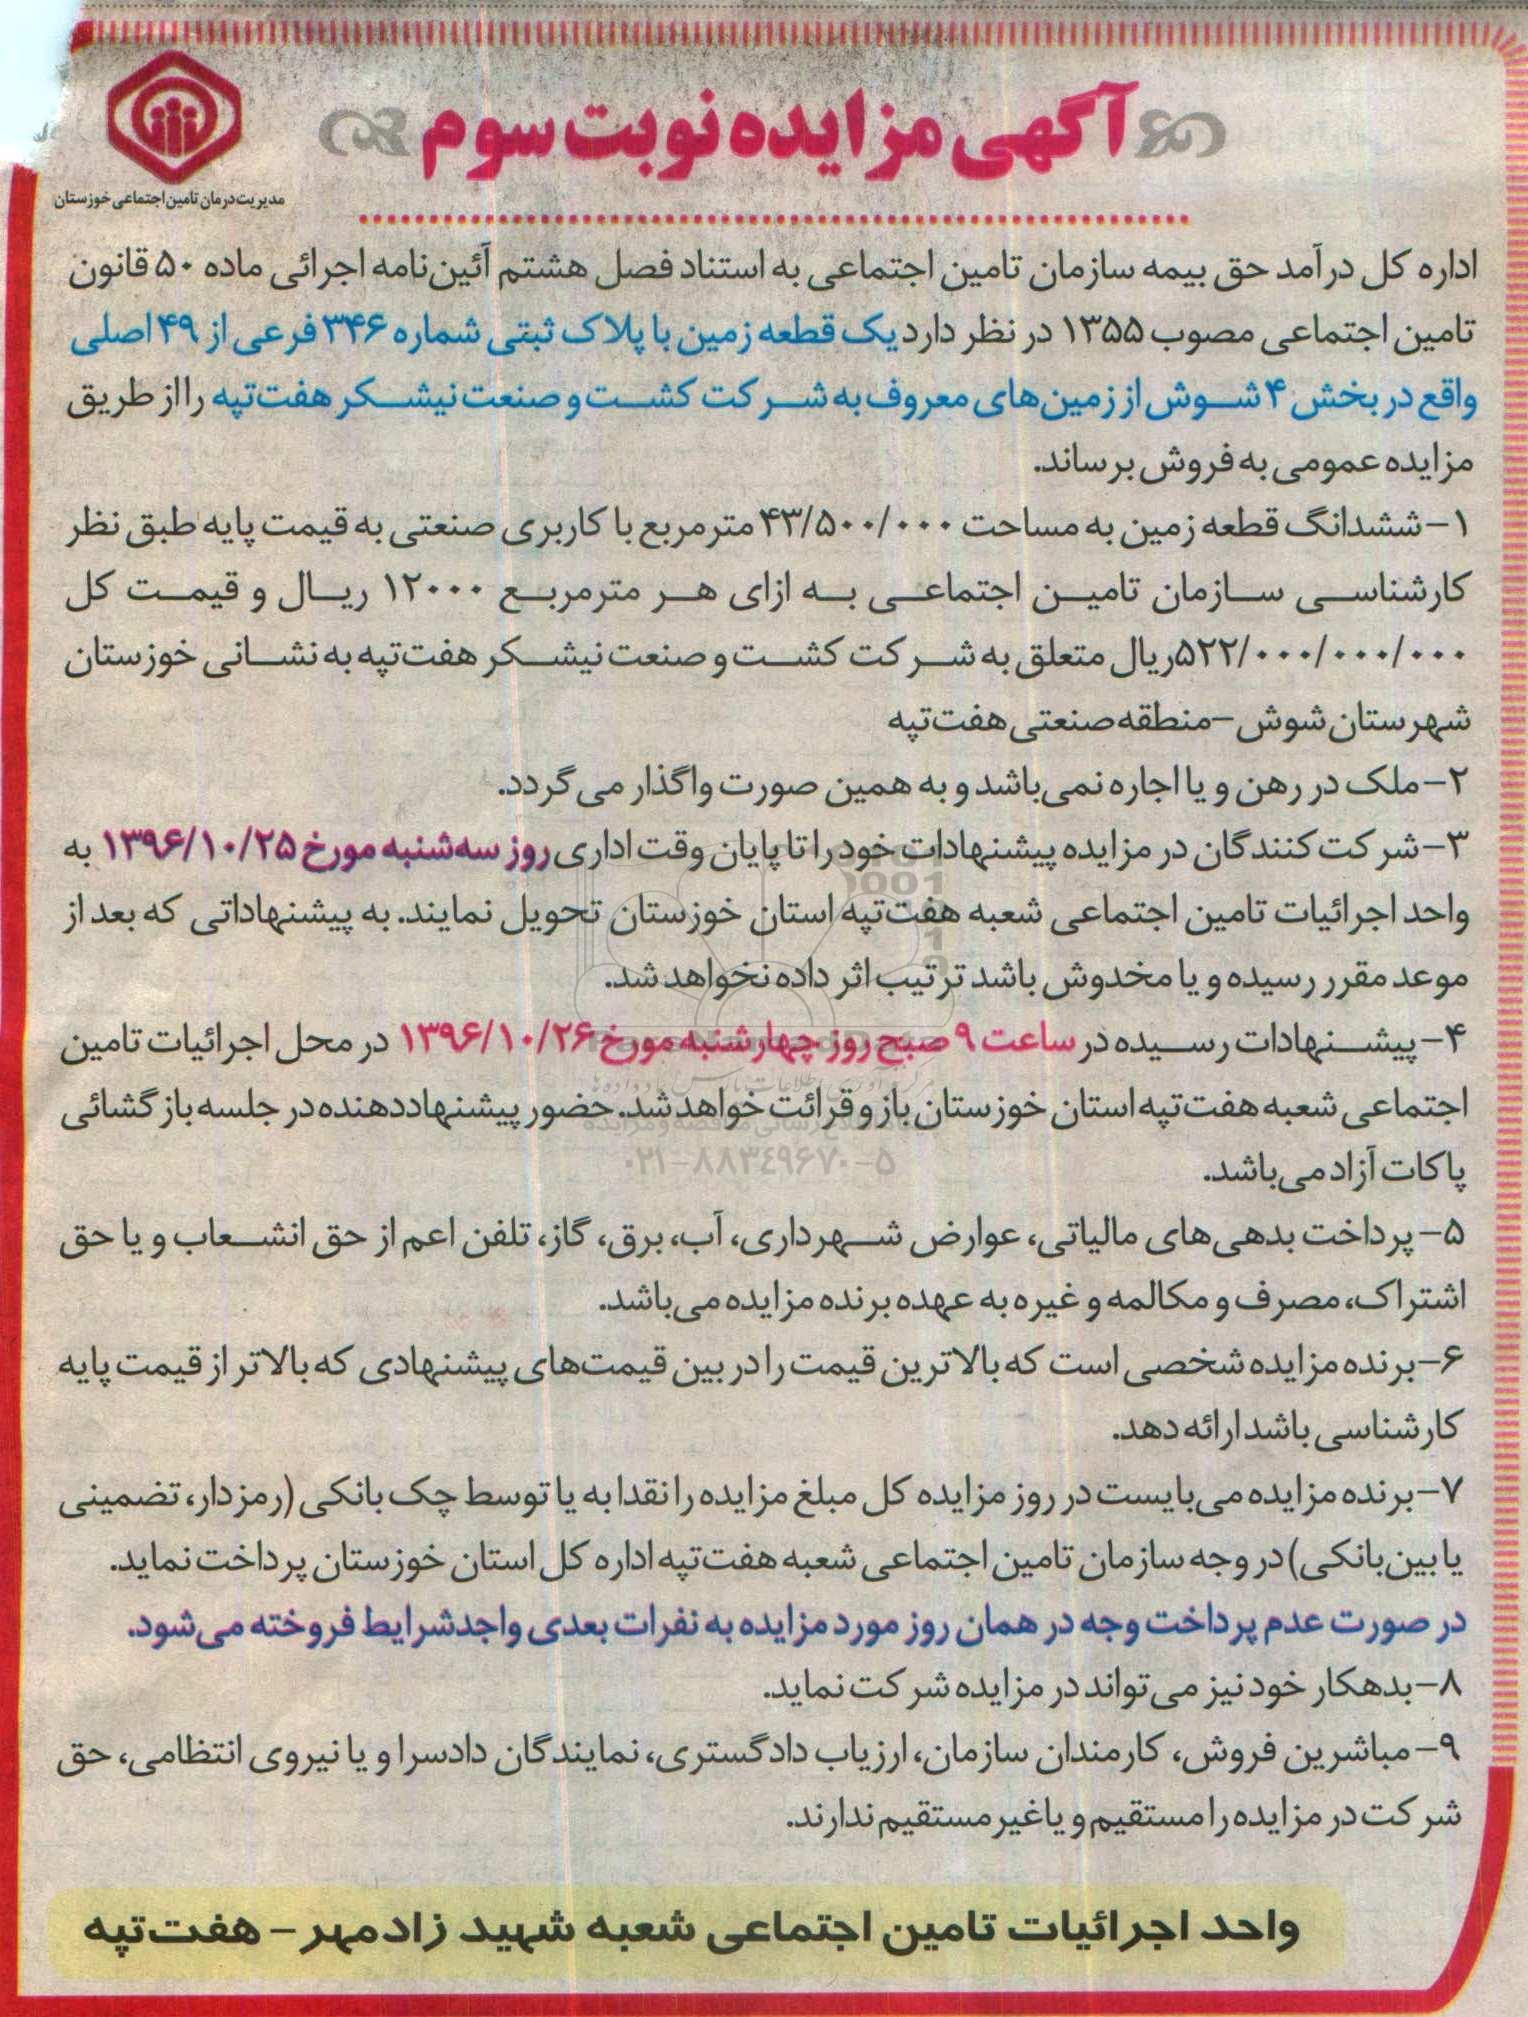 آگهی مزایده نوبت سوم
مدیریت درمان تامین اجتماعی خوزستان
اداره کل درآمد حق بیمه سازمان تامین اجتماعی به استناد فصل هشتم آئین‌نامه اجرائی ماده ۵۰ قانون
تامین اجتماعی مصوب ۱۳۵۵ در نظر دارد یک قطعه زمین با پلاک ثبتی شماره ۳۴۶ فرعی از ۴۹ اصلی
واقع در بخش ۴ شوش از زمین‌های معروف به شرکت کشت و صنعت نیشکر هفت‌تپه را از طریق
مزایده عمومی به فروش برساند.
۱- ششدانگ قطعه زمین به مساحت ۴۳/۵۰۰/۰۰۰ مترمربع با کاربری صنعتی به قیمت پایه طبق نظر
کارشناسی سازمان تامین اجتماعی به ازای هر مترمربع ۱۲۰۰۰ ریال و قیمت کل
۵۲۲/۰۰۰/۰۰۰/۰۰۰ریال متعلق به شرکت کشت و صنعت نیشکر هفت‌تپه به نشانی خوزستان
شهرستان شوش -منطقه صنعتی هفت‌تپه
۲- ملک در رهن و یا اجاره نمی‌باشد و به همین صورت واگذار می‌گردد.
۳- شرکت کنندگان در مزایده پیشنهادات خود را تا پایان وقت اداری روز سه‌شنبه مورخ ۱۳۹۶/۱۰/۲۵ به
واحد اجرائیات تامین اجتماعی شعبه هفت‌تپه استان خوزستان تحویل نمایند. به پیشنهاداتی که بعد از
موعد مقرر رسیده و یا مخدوش باشد ترتیب اثر داده نخواهد شد.
۴- پیشنهادات رسیده در ساعت ۹ صبح روز چهارشنبه مورخ ۱۳۹۶/۱۰/۲۶ در محل اجرائیات تامین
اجتماعی شعبه هفت‌تپه استان خوزستان باز و قرائت خواهد شد. حضور پیشنهاددهنده در جلسه بازگشائی
پاکات آزاد می‌باشد.
۰۲۱-۸۸۳۴۹۶۷۰-۵
۵- پرداخت بدهی‌های مالیاتی، عوارض شهرداری، آب، برق، گاز، تلفن اعم از حق انشعاب و یا حق
اشتراک، مصرف و مکالمه و غیره به عهده برنده مزایده می‌باشد.
۶- برنده مزایده شخصی است که بالاترین قیمت را در بین قیمت‌های پیشنهادی که بالاتر از قیمت پایه
کارشناسی باشد ارائه دهد.
۷- برنده مزایده می‌بایست در روز مزایده کل مبلغ مزایده را نقدا به یا توسط چک بانکی (رمزدار، تضمینی
یا بین‌بانکی) در وجه سازمان تامین اجتماعی شعبه هفت‌تپه اداره کل استان خوزستان پرداخت نماید.
در صورت عدم پرداخت وجه در همان روز مورد مزایده به نفرات بعدی واجدشرایط فروخته می‌شود.
۸- بدهکار خود نیز می‌تواند در مزایده شرکت نماید.
۹- مباشرین فروش، کارمندان سازمان، ارزیاب دادگستری، نمایندگان دادسرا و یا نیروی انتظامی، حق
شرکت در مزایده را مستقیم و یا غیر مستقیم ندارند.
واحد اجرائیات تامین اجتماعی شعبه شهید زادمهر - هفت‌تپه